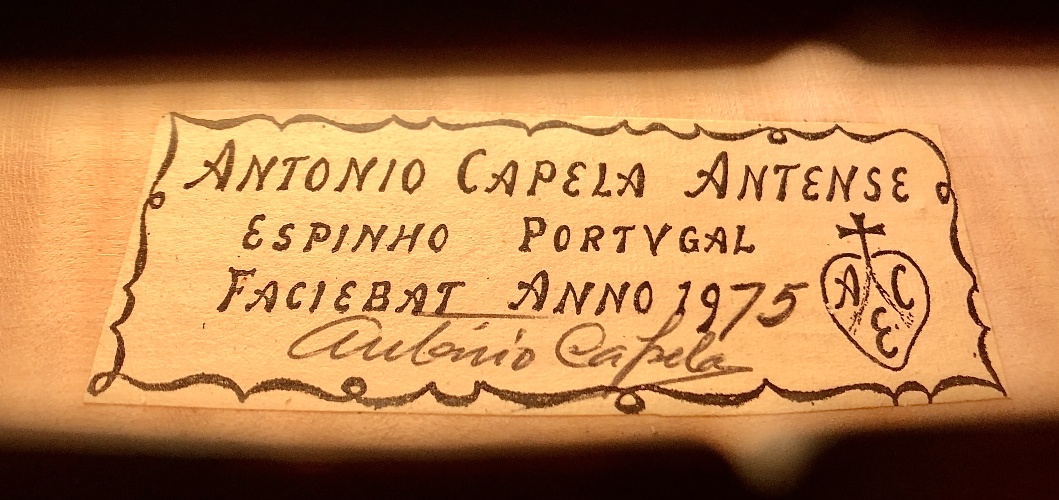 ANTONIO CAPELA ANTENSE
ESPINHO PORTVGAL
FACIEBAT ANNO 1975
António Capela
A C
E